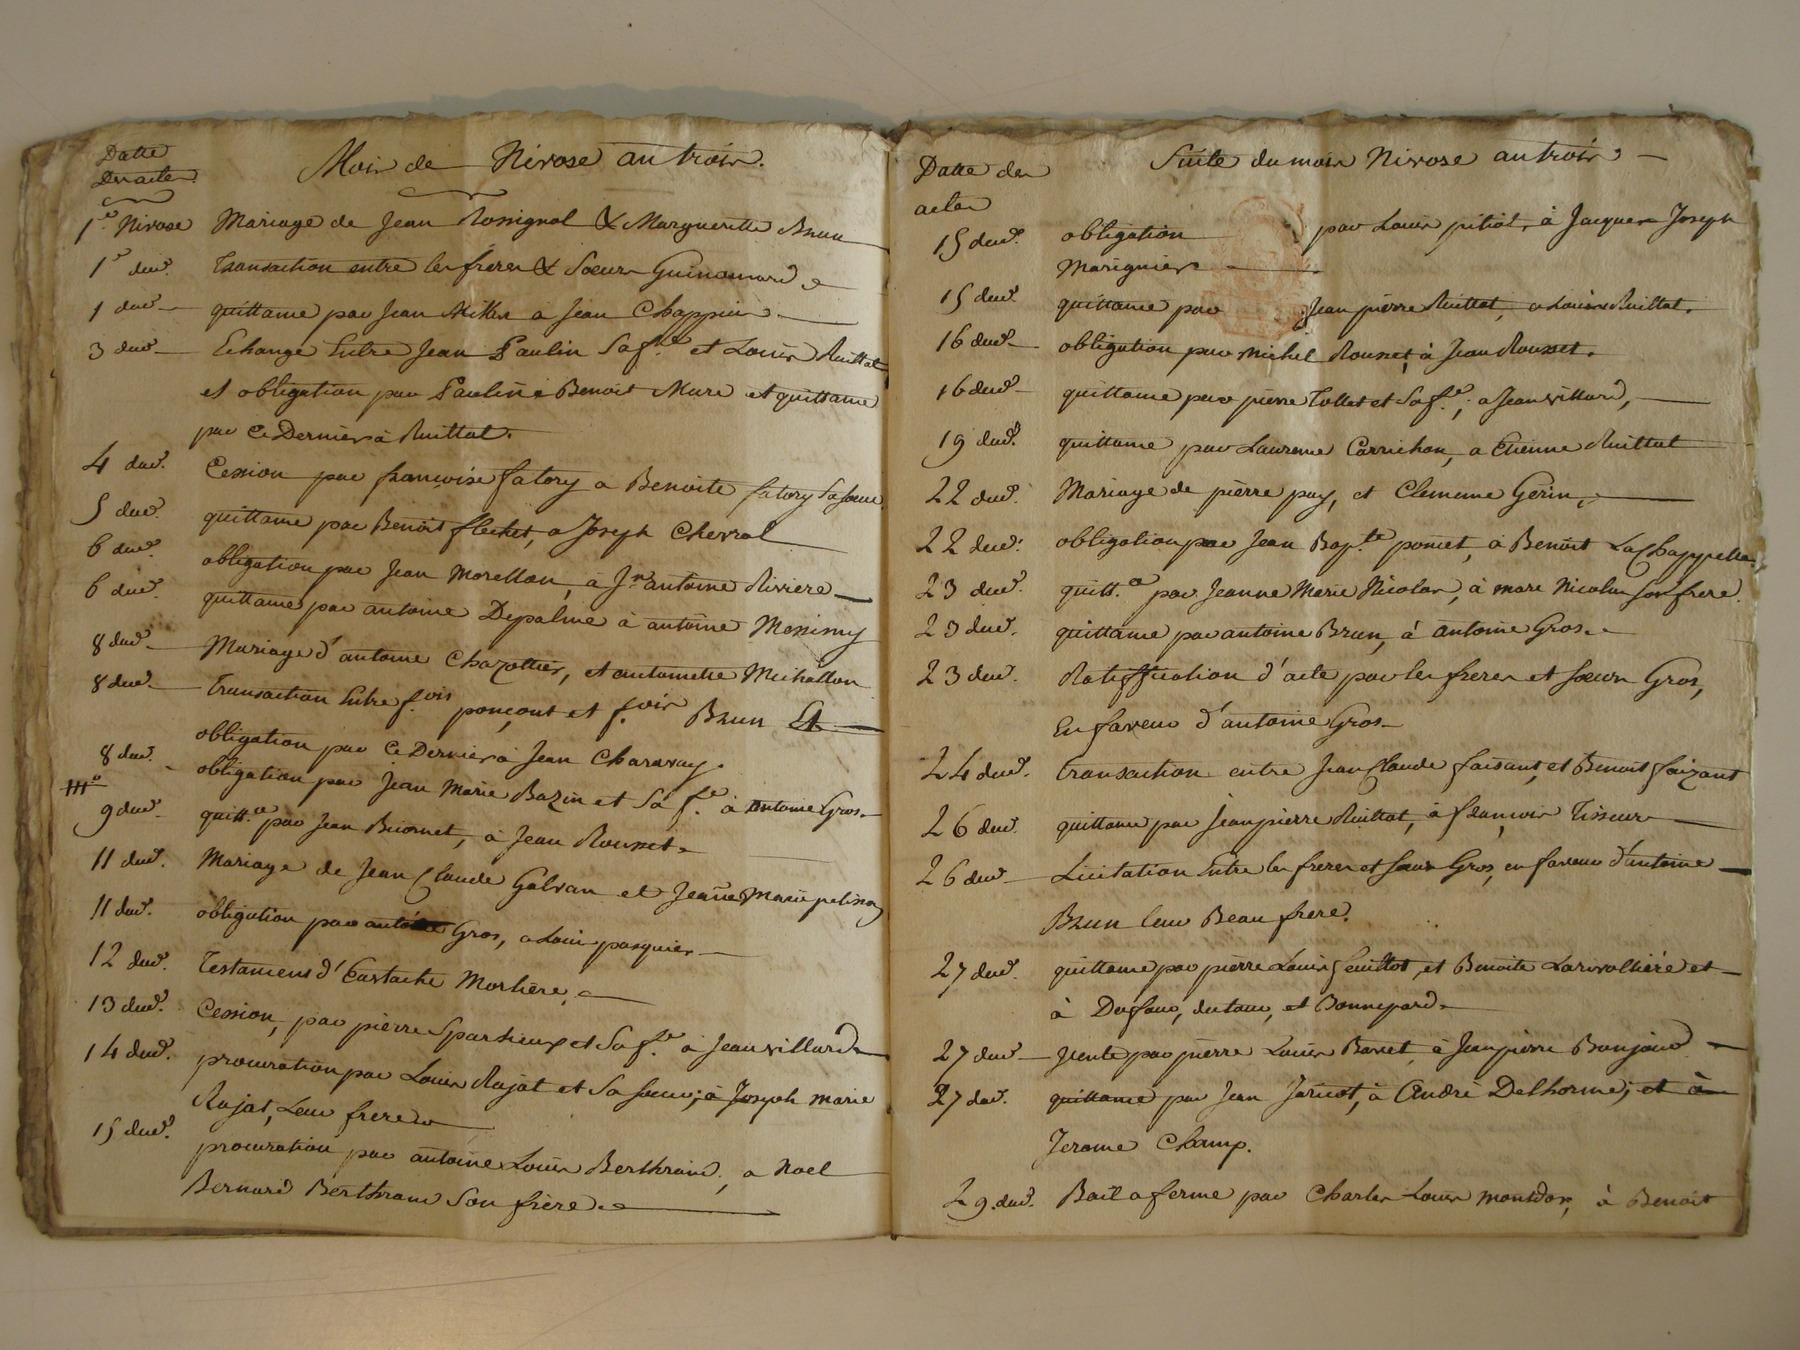 Datte
Des actes
Mois de Nivose an trois.
1er Nivose Mariage de Jean Rossignol & Margueritte Brun
1er dud. transaction entre les freres & Soeurs Guinamard
1 dud. quittance par Jean Millen à Jean Chappuis
3 dud. Echange Entre Jean Paulin Sa fe. et Louis Ruittat
et obligation par Paulin à Benoit Mure et quittance
par Ce Dernier à Ruittat.
4 dud. Cession par françoise fatory a Benoite fatory Sa soeur
5 dud. quittance par Benoit flechet, a Joseph Cherral
6 dud. obligation par Jean Morellon, à Jn. antoine Riviere
6 dud. quittance par antoine Depalme à antoine Messimy
8 dud. Mariage d'antoine Chazottier, et antoinette Michallon
8 dud. transaction Entre fois ponçont et fois Brun Et
obligation par Ce Dernier à Jean Charavay.
8 dud. obligation par Jean Marie Bazin et Sa fe. à antoine Gros.
9 dud. quitt.ce par Jean Biornet, à Jean Rousset.
11 dud. Mariage de Jean Claude Galvan et Jeanne Marie pelisson
11 dud. obligation par antoine Gros, a Louis pasquier
12 dud. Testament d'Eustache Morlière,
13 dud. Cession, par pierre Sparsieux et Sa fe. à Jean villard
14 dud. procuration par Louis Rajat et Sa soeur, à Joseph marie
Rajat, Leur frere
15 dud. procuration par antoine Louis Berthrand, a Noel
Bernard Berthrand Son frère.
Datte des
actes
Suite du mois Nivose an trois
15 dud. obligation par Louis pitiot, à Jacques Joseph
Marignier
15 dud. quittance par Jean pierre Ruittat, a Louis Ruittat.
16 dud. obligation par Michel Rousset, à Jean Rousset.
16 dud. quittance par pierre Tollet et Sa fe., a Jean villard,
19 dud. quittance par Laurence Carrichon, a Etienne Ruittat
22 dud. Mariage de pierre puy, et Clemence Gerin,
22 dud. obligation par Jean Bap.te pomet, à Benoit Lachappelle
23 dud. quitt.ce par Jeanne Marie Nicolas, à marc Nicolas son frere.
23 dud. quittance par antoine Brun, à antoine Gros.
23 dud. Ratiffication d'acte par les freres et soeurs Gros,
En faveur d'antoine Gros
24 dud. transaction entre Jean Claude faisant, et Benoit faizant
26 dud. quittance par Jean pierre Ruittat, à françois Tisseur
26 dud. Licitation Entre les freres et Soeur Gros, en faveur d'antoine
Brun leur Beau frere.
27 dud. quittance par pierre Louis feuillot, et Benoite Larivollière et
à Dufour, dutour, et Bonnepard
27 dud. Vente par pierre Louis Barret, à Jean pierre Bonjour
27 dud. quittance par Jean Jaricot, à André Delhorme, et à
Jerome Champ.
29. dud. Bail a ferme par Charles Louis montdor, à Benoit